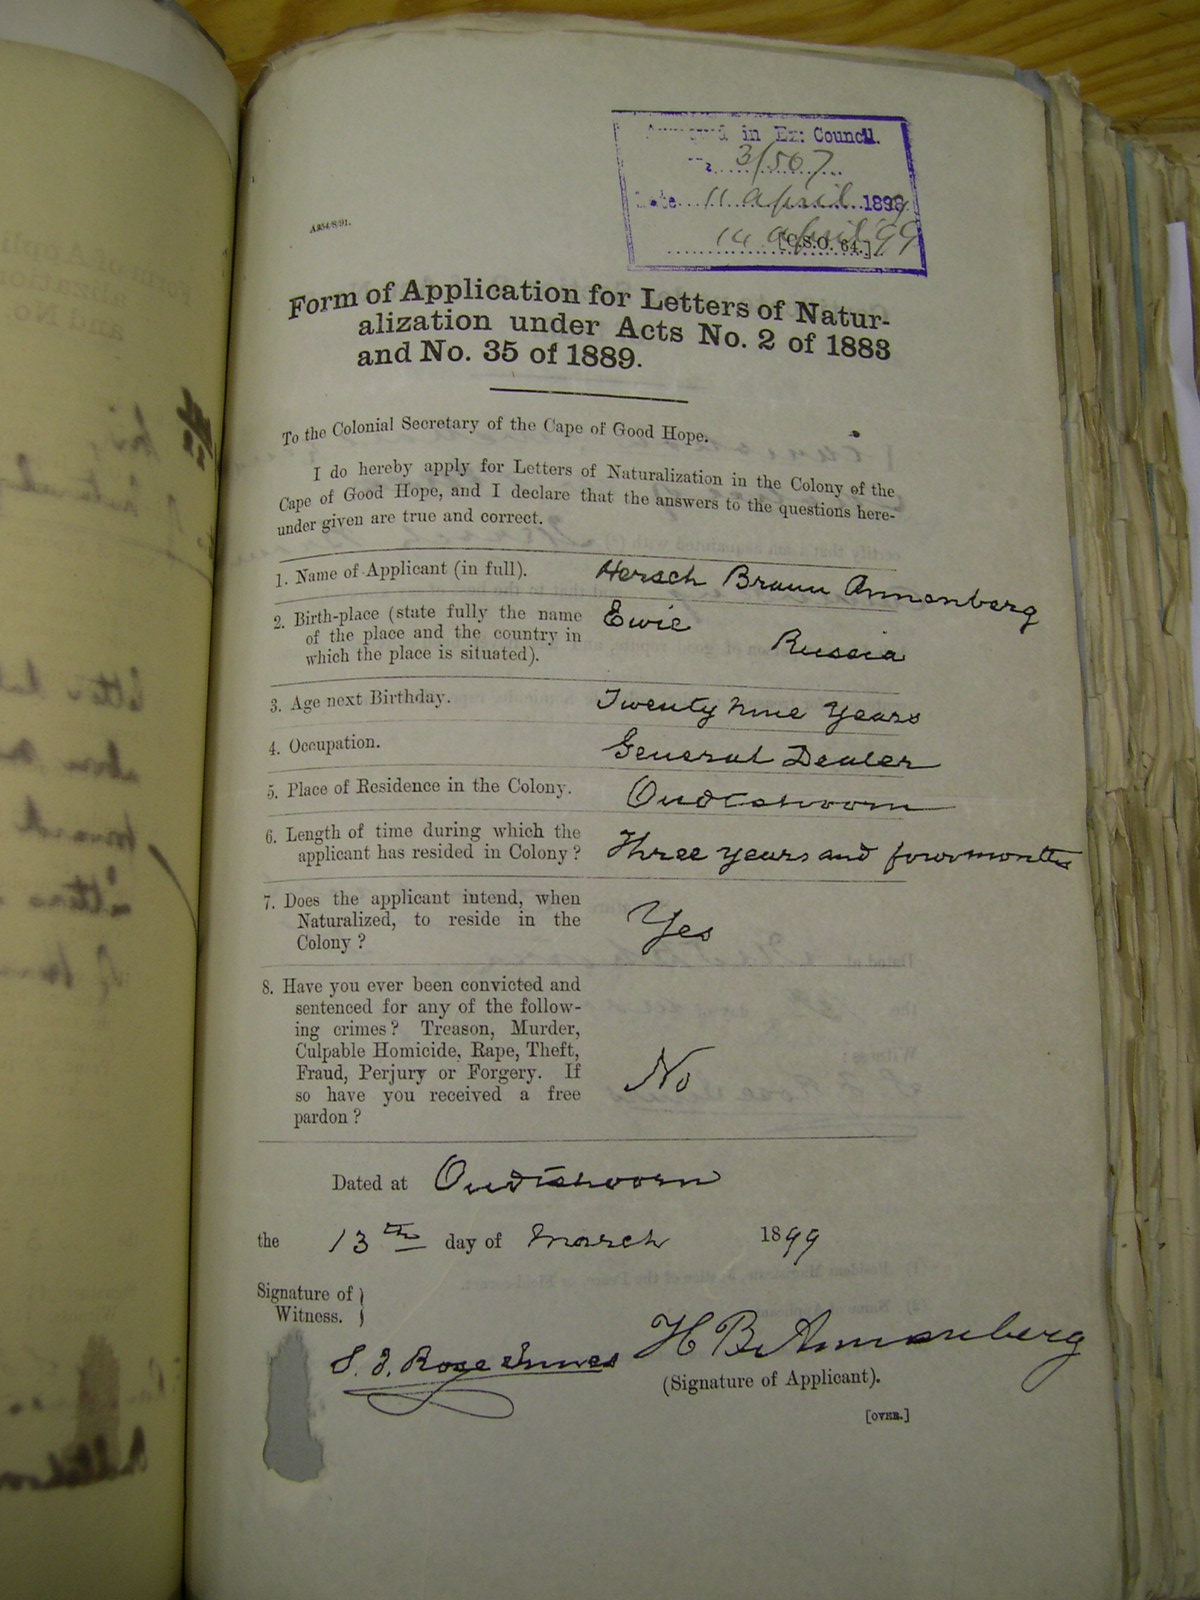 Approved in Ex: Council.
3/507
Date 11 April 1899
14 April 99
[C.S.O. 64.]
A254/8/91.
Form of Application for Letters of Natur-
alization under Acts No. 2 of 1883
and No. 35 of 1889.
To the Colonial Secretary of the Cape of Good Hope.
I do hereby apply for Letters of Naturalization in the Colony of the
Cape of Good Hope, and I declare that the answers to the questions here-
under given are true and correct.
1. Name of Applicant (in full). Hersch Braun Annenberg
2. Birth-place (state fully the name
of the place and the country in
which the place is situated).
Ewie Russia
3. Age next Birthday. Twenty nine Years
4. Occupation. General Dealer
5. Place of Residence in the Colony. Oudtshoorn
6. Length of time during which the
applicant has resided in Colony?
Three years and four months
7. Does the applicant intend, when
Naturalized, to reside in the
Colony?
Yes
8. Have you ever been convicted and
sentenced for any of the follow-
ing crimes? Treason, Murder,
Culpable Homicide, Rape, Theft,
Fraud, Perjury or Forgery. If
so have you received a free
pardon?
No
Dated at Oudtshoorn
the 13th day of March 1899
Signature of
Witness.
S. J. Rose Innes
H B Annenberg
(Signature of Applicant).
[OVER.]